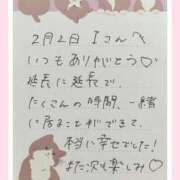 2月2日 Iさんへ
いつもありがとう♡
延長に延長で、
たくさんの時間、一緒
に居ることができて、
本当に幸せでした!
また次も楽しみ♡